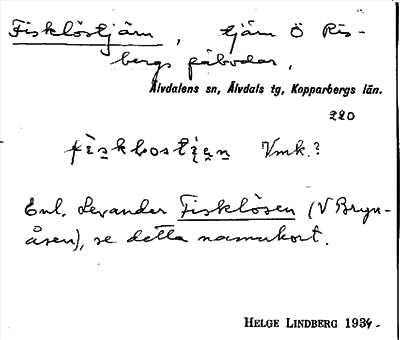 Fisklöstjärn, tjärn Ö Ris-
bergs fäbodar,
Älvdalens sn, Älvdals tg, Kopparbergs län.
220
Vmk.?
Enl. Levander Fisklösen (V Bryn-
åsen), se detta namnkort.
HELGE LINDBERG 1934.